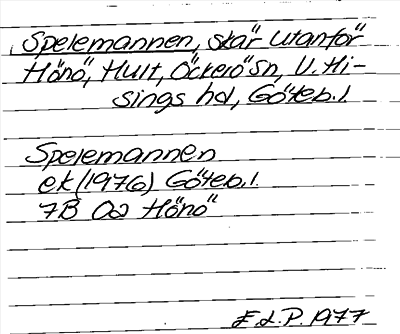 Spelemannen, skär utanför
Hönö, Hult, Öckerö Sn, V. Hi-
sings hd, Göteb. l.
Spelemannen
ek (1976) Göteb. l.
7B 0a Hönö
E.L.P. 1977